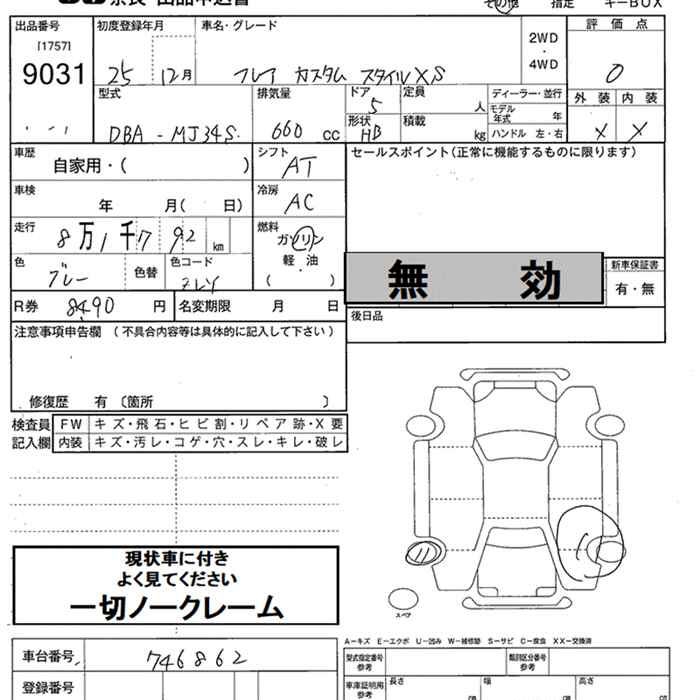 その他 指定 キーBOX
出品番号 初度登録年月 車名・グレード 評価点
[1757] 2WD
9031 25 12月 フレア カスタム スタイルXS ・ 0
4WD
型式 排気量 ドア 5 定員 人 ディーラー・並行 外装 内装
モデル年式 年
DBA - MJ34S 660 cc 形状 HB 積載 kg ハンドル 左・右 X X
車歴 シフト セールスポイント(正常に機能するものに限ります)
自家用・( ) AT
車検 冷房
年 月( 日) AC
走行 燃料
8万1千792 km ガソリン
色 色替 色コード 軽・油 無効 新車保証書
グレー ( ) 有・無
R券 8490 円 名変期限 月 日 後日品
注意事項申告欄 (不具合内容等は具体的に記入して下さい)
修復歴 有 〔箇所 〕
検査員 FW キズ・飛石・ヒビ割・リペア跡・X要
記入欄 内装 キズ・汚レ・コゲ・穴・スレ・キレ・破レ
現状車に付き
よく見てください
一切ノークレーム
スペア
A-キズ E-エクボ U-凹み W-補修跡 S-サビ C-腐食 XX-交換済
車台番号 746862 型式指定番号 参考 類別区分番号 参考
登録番号 車庫証明用 参考 長さ 幅 高さ